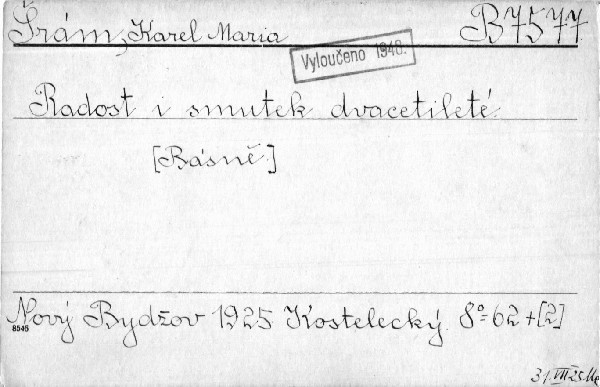 Šrám, Karel Maria B 7577
Vyloučeno 1948.
Radost i smutek dvacetileté.
[Básně.]
Nový Bydžov 1925 Kostelecký. 8° 62 + [2]
8545
31. VII 25